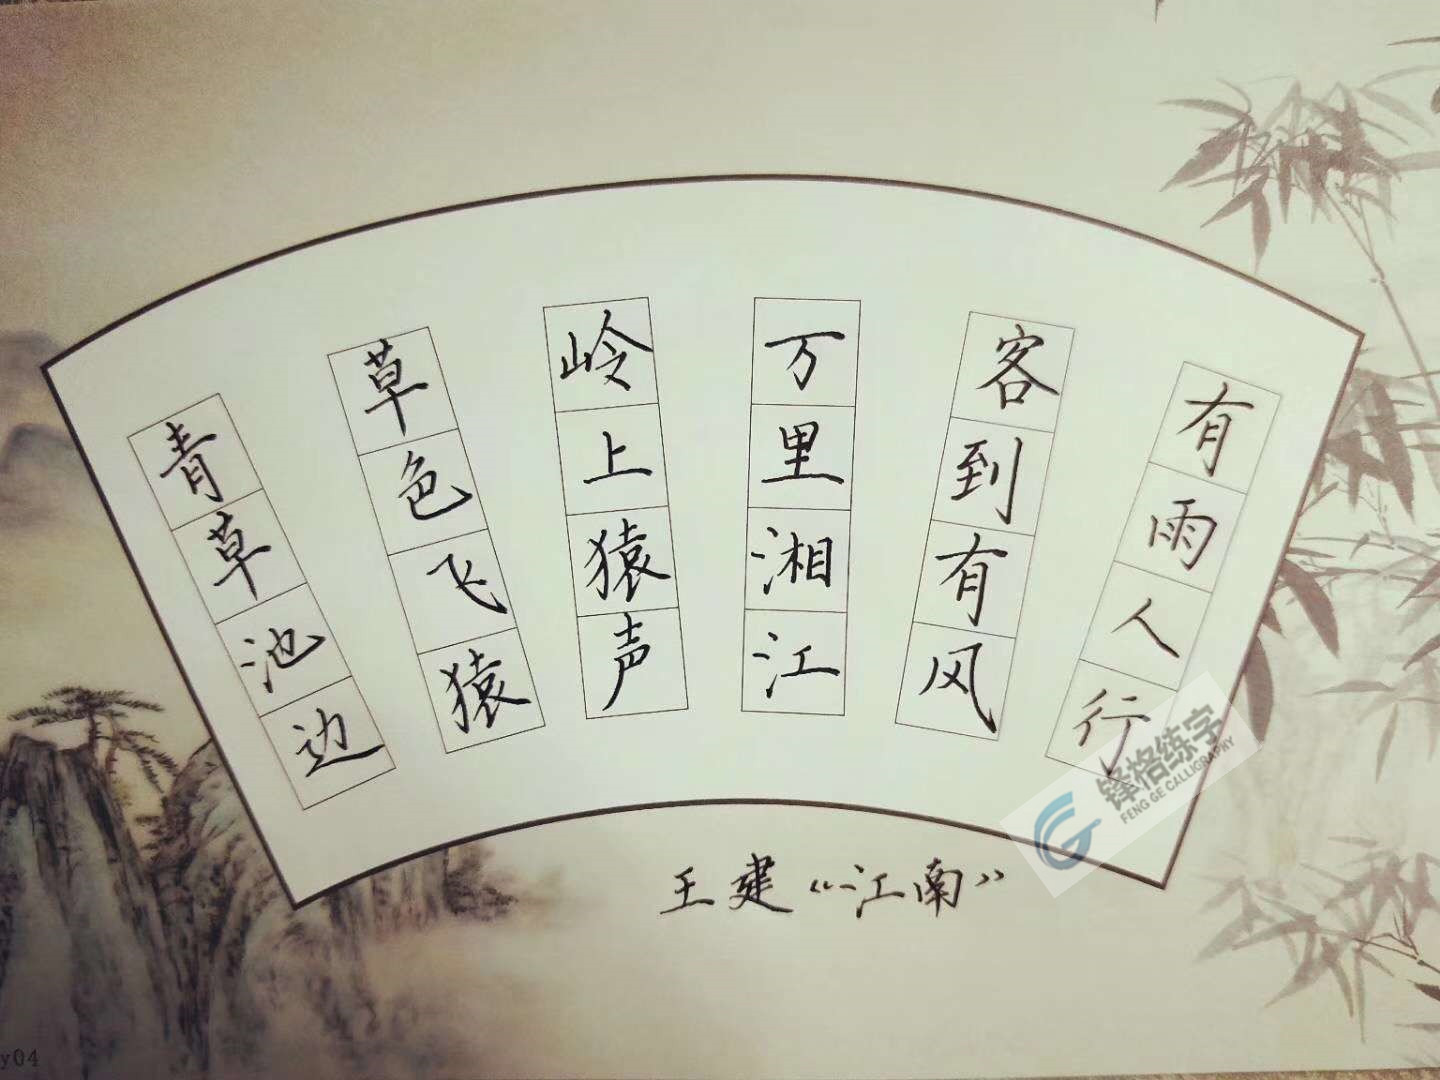 青草池边
草色飞猿
岭上猿声
万里湘江
客到有风
有雨人行
王建《江南》
锋格练字
FENG GE CALLIGRAPHY
y04